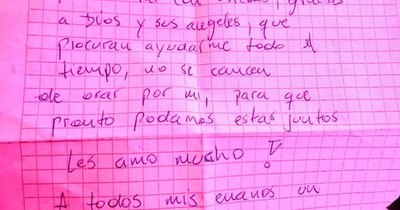 gracias
a Dios y sus angeles, que
procuran ayudarme todo el
tiempo, no se cancen
de orar por mi, para que
pronto podamos estar juntos
Les amo mucho !
A todos mis